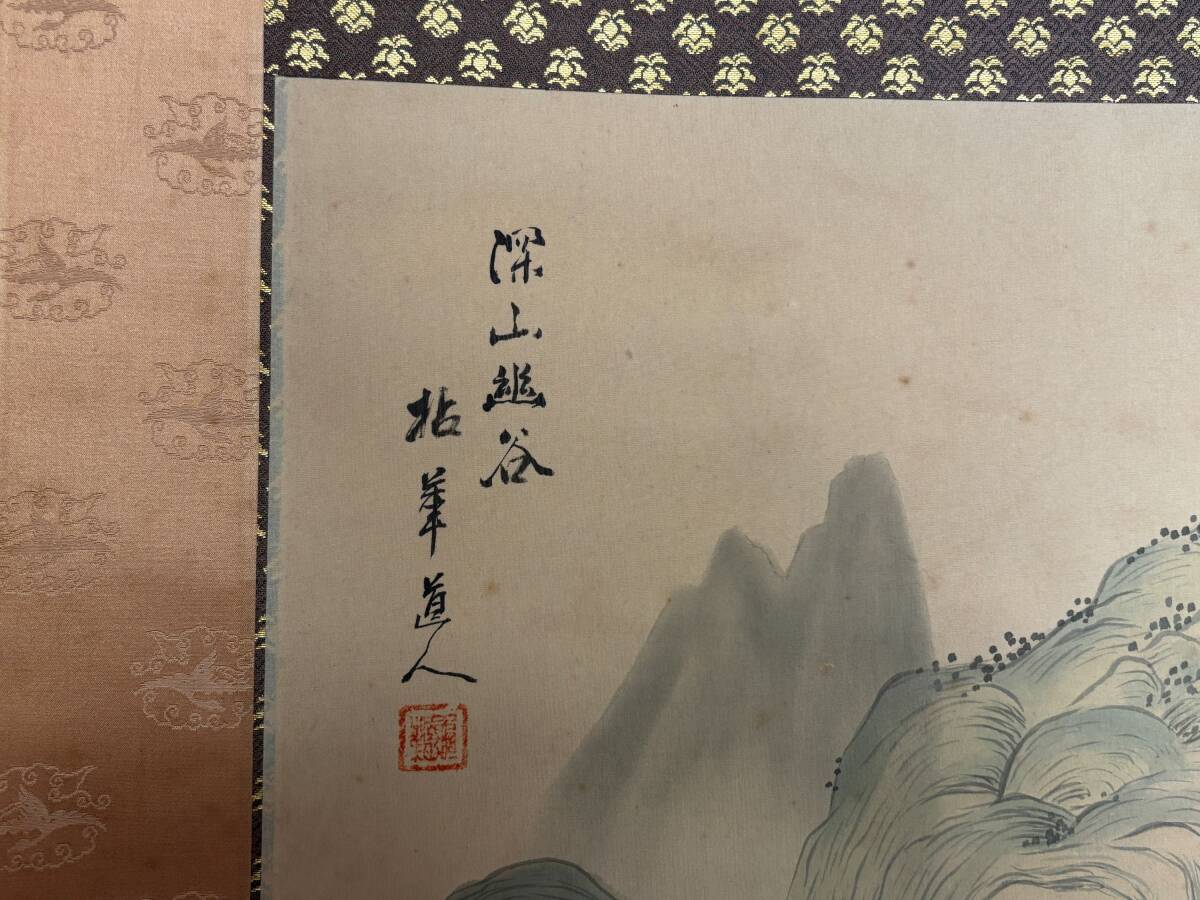 深山幽谷
拈華道人